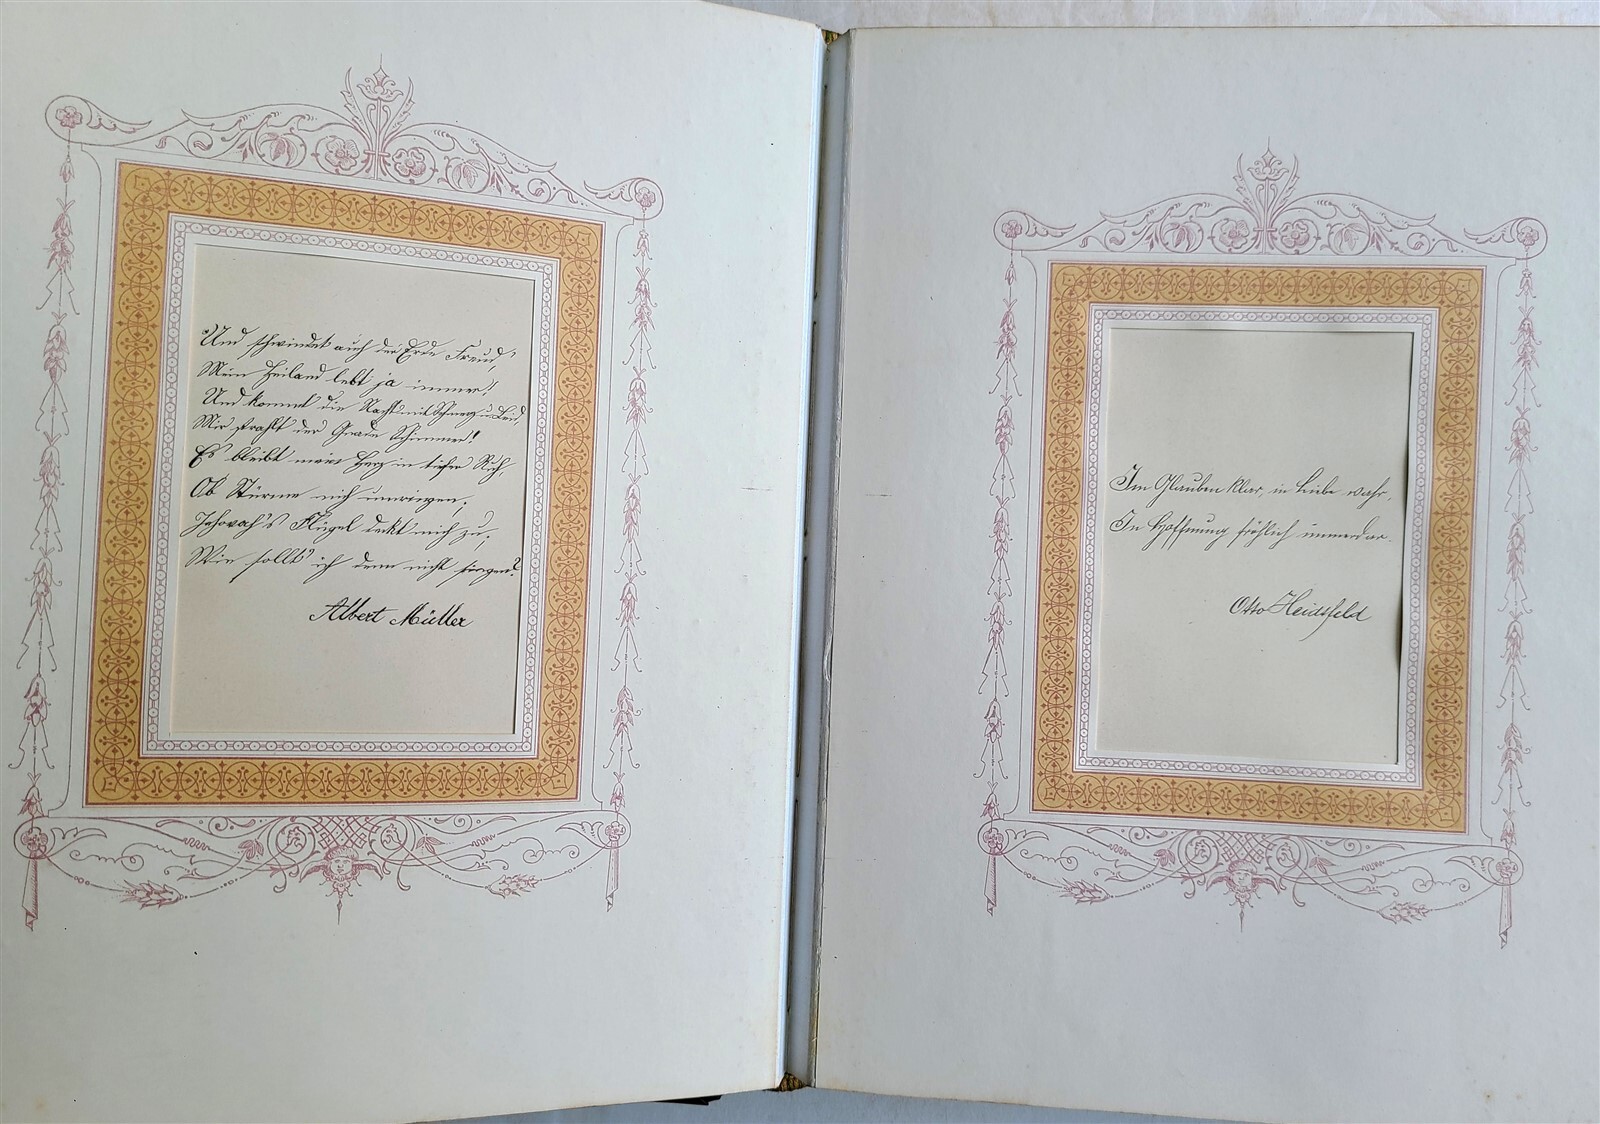 Und schwindet auch der Erde Freud,
Mein Heiland lebt ja immer!
Und kommet die Nacht mit Schmerz u. Leid,
Mir strahlt der Gnade Schimmer!
Es bleibt mein Herz in tiefer Ruh,
Ob Stürme mich umringen;
Jehovah's Flügel deckt mich zu;
Wie sollt' ich denn nicht singen?
Albert Müller
Im Glauben klar, in Liebe wahr,
In Hoffnung fröhlich immerdar.
Otto Heidsfeld